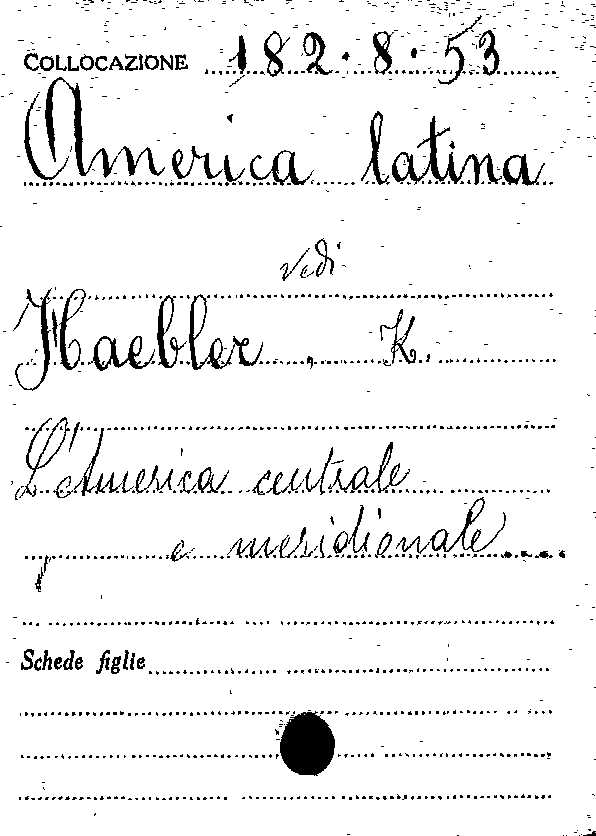 COLLOCAZIONE 182.8.53
America latina
vedi
Haebler, K.
L'America centrale
e meridionale....
Schede figlie